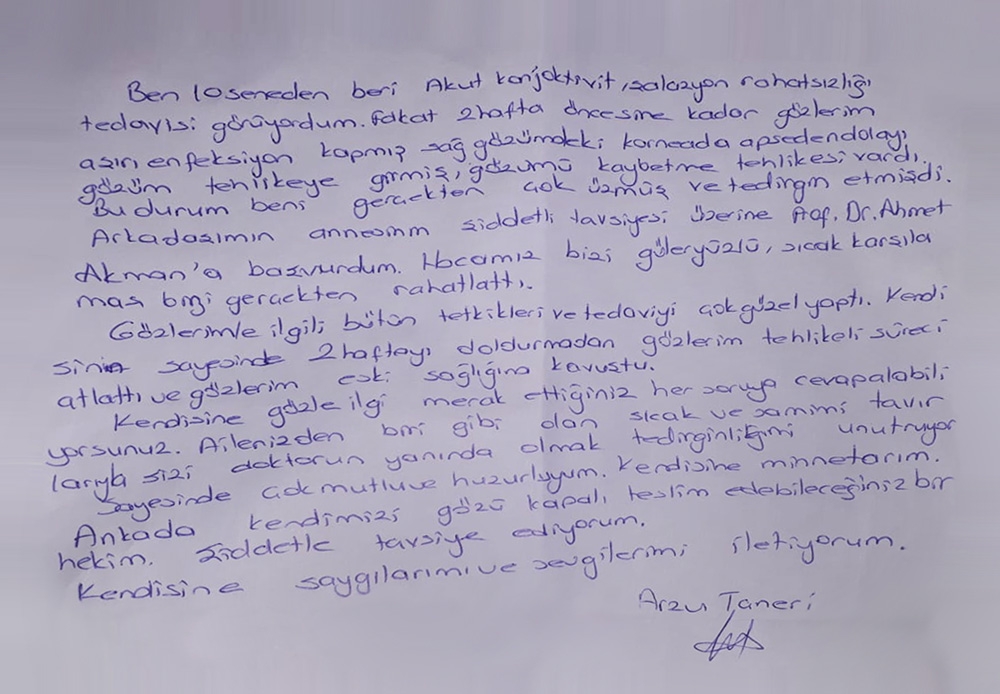 Ben 10 seneden beri Akut konjoktivit, şalazyon rahatsızlığı
tedavisi görüyordum. Fakat 2 hafta öncesine kadar gözlerim
aşırı enfeksiyon kapmış sağ gözümdeki korneada apsedendolayı
gözüm tehlikeye girmiş, gözümü kaybetme tehlikesi vardı.
Bu durum beni gerçekten çok üzmüş ve tedirgin etmişdi.
Arkadaşımın annesinin şiddetli tavsiyesi üzerine Prof. Dr. Ahmet
Akman'a başvurdum. Hocamız bizi güleryüzlü, sıcak karşıla
ması bizi gerçekten rahatlattı.
Gözlerimle ilgili bütün tetkikleri ve tedaviyi çok güzel yaptı. Kendi
sinin sayesinde 2 haftayı doldurmadan gözlerim tehlikeli süreci
atlattı ve gözlerim eski sağlığına kavuştu.
Kendisine gözle ilgi merak ettiğiniz her soruya cevapalabili
yorsunuz. Ailenizden biri gibi olan sıcak ve samimi tavır
larıyla sizi doktorun yanında olmak tedirginliğimi unutruyor
sayesinde çok mutlu ve huzurluyum. Kendisine minnetarım.
Ankada kendimizi gözü kapalı teslim edebileceğiniz bir
hekim. Şiddetle tavsiye ediyorum.
Kendisine saygılarımı ve sevgilerimi iletiyorum.
Arzu Taneri